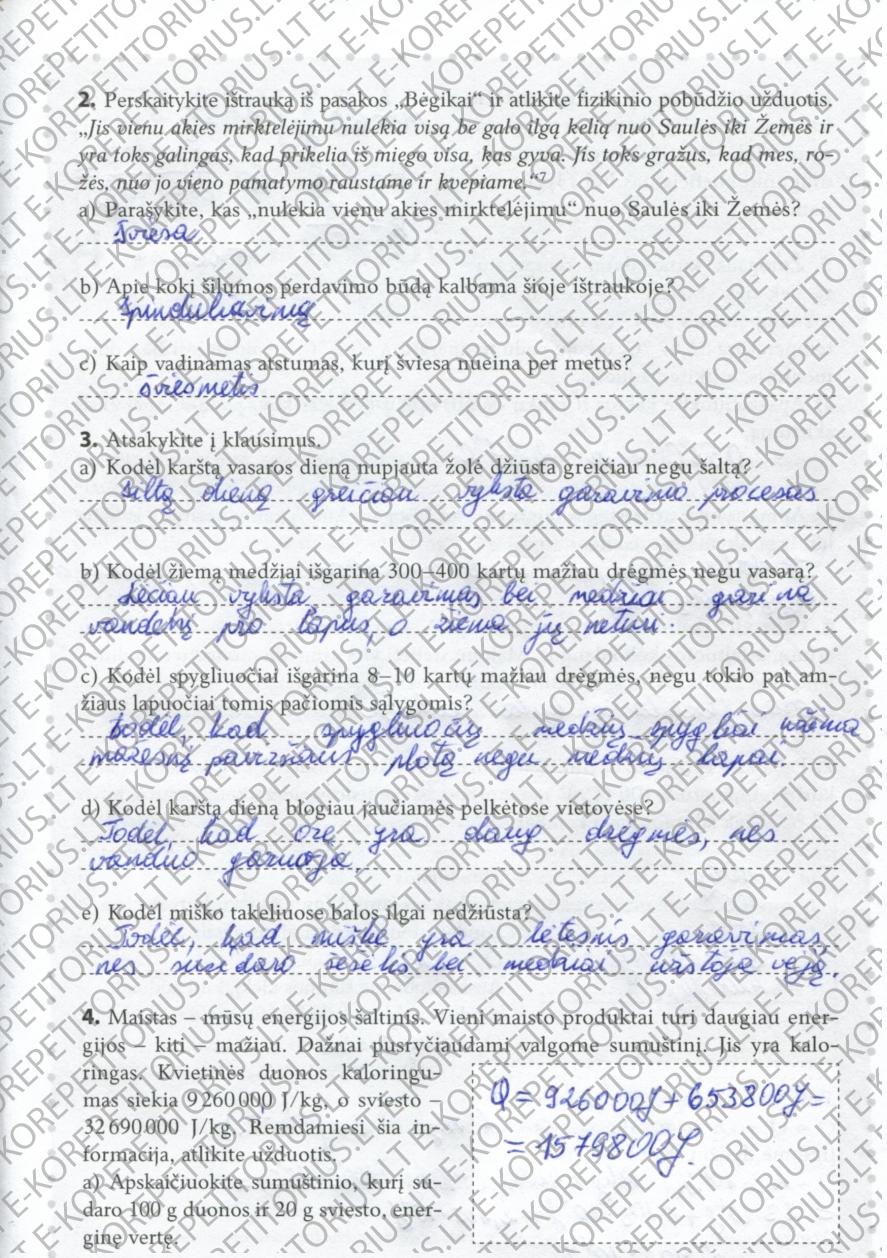 2. Perskaitykite ištrauką iš pasakos „Bėgikai“ ir atlikite fizikinio pobūdžio užduotis.
„Jis vienu akies mirktelėjimu nulekia visą be galo ilgą kelią nuo Saulės iki Žemės ir
yra toks galingas, kad prikelia iš miego visa, kas gyva. Jis toks gražus, kad mes, ro-
žės, nuo jo vieno pamatymo raustame ir kvepiame.“7
a) Parašykite, kas „nulekia vienu akies mirktelėjimu“ nuo Saulės iki Žemės?
Šviesa
b) Apie kokį šilumos perdavimo būdą kalbama šioje ištraukoje?
Spinduliavimą
c) Kaip vadinamas atstumas, kurį šviesa nueina per metus?
šviesmetis
3. Atsakykite į klausimus.
a) Kodėl karštą vasaros dieną nupjauta žolė džiūsta greičiau negu šaltą?
šiltą dieną greičiau vyksta garavimo procesas
b) Kodėl žiemą medžiai išgarina 300–400 kartų mažiau drėgmės negu vasarą?
Lėčiau vyksta garavimas bei medžiai garina
vandenį pro lapus, o žiema jų neturi.
c) Kodėl spygliuočiai išgarina 8–10 kartų mažiau drėgmės, negu tokio pat am-
žiaus lapuočiai tomis pačiomis sąlygomis?
todėl, kad spygliuočių medžių spygliai užima
mažesnį paviršiaus plotą negu medžių lapai.
d) Kodėl karštą dieną blogiau jaučiamės pelkėtose vietovėse?
Todėl, kad ore yra daug drėgmės, nes
vanduo garuoja.
e) Kodėl miško takeliuose balos ilgai nedžiūsta?
Todėl, kad miške yra lėtesnis garavimas,
nes susidaro šešėlis bei medžiai užstoja vėją.
4. Maistas – mūsų energijos šaltinis. Vieni maisto produktai turi daugiau ener-
gijos – kiti – mažiau. Dažnai pusryčiaudami valgome sumuštinį. Jis yra kalo-
ringas. Kvietinės duonos kaloringu-
mas siekia 9 260 000 J/kg, o sviesto –
32 690 000 J/kg. Remdamiesi šia in-
formacija, atlikite užduotis.
a) Apskaičiuokite sumuštinio, kurį su-
daro 100 g duonos ir 20 g sviesto, ener-
ginę vertę.
Q = 926000J + 653800J =
= 1579800J.